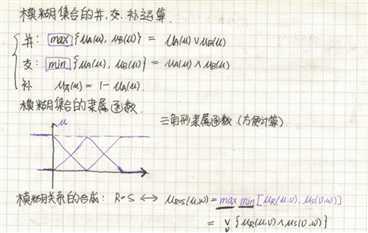 模糊集合的并,交,补运算.
并: max{μA(u), μB(u)} = μA(u) ∨ μB(u)
交: min{μA(u), μB(u)} = μA(u) ∧ μB(u)
补 μĀ(u) = 1 - μA(u).
模糊集合的隶属函数
μ
三角形隶属函数 (方便计算)
模糊关系的合成: R∘S ↔ μR∘S(u,w) = max min [μR(u,v), μS(v,w)]
= ∨v {μR(u,v) ∧ μS(v,w)}